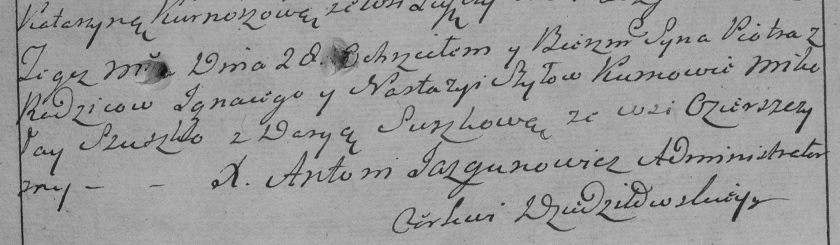 Katarzyną Kurnoszową ze wsi
Tegoż mca Dnia 28. Ochrzciłem y Bierzm Syna Piotra z
Rodzicow Ignacego y Nastazyi Szyłow Kumowie Miko
łay Szuszko z Daryą Suszkową ze wsi Ozierszczy
zny - - X. Antoni Jazgunowicz Administrator
Cerkwi Dziedziłowskiey